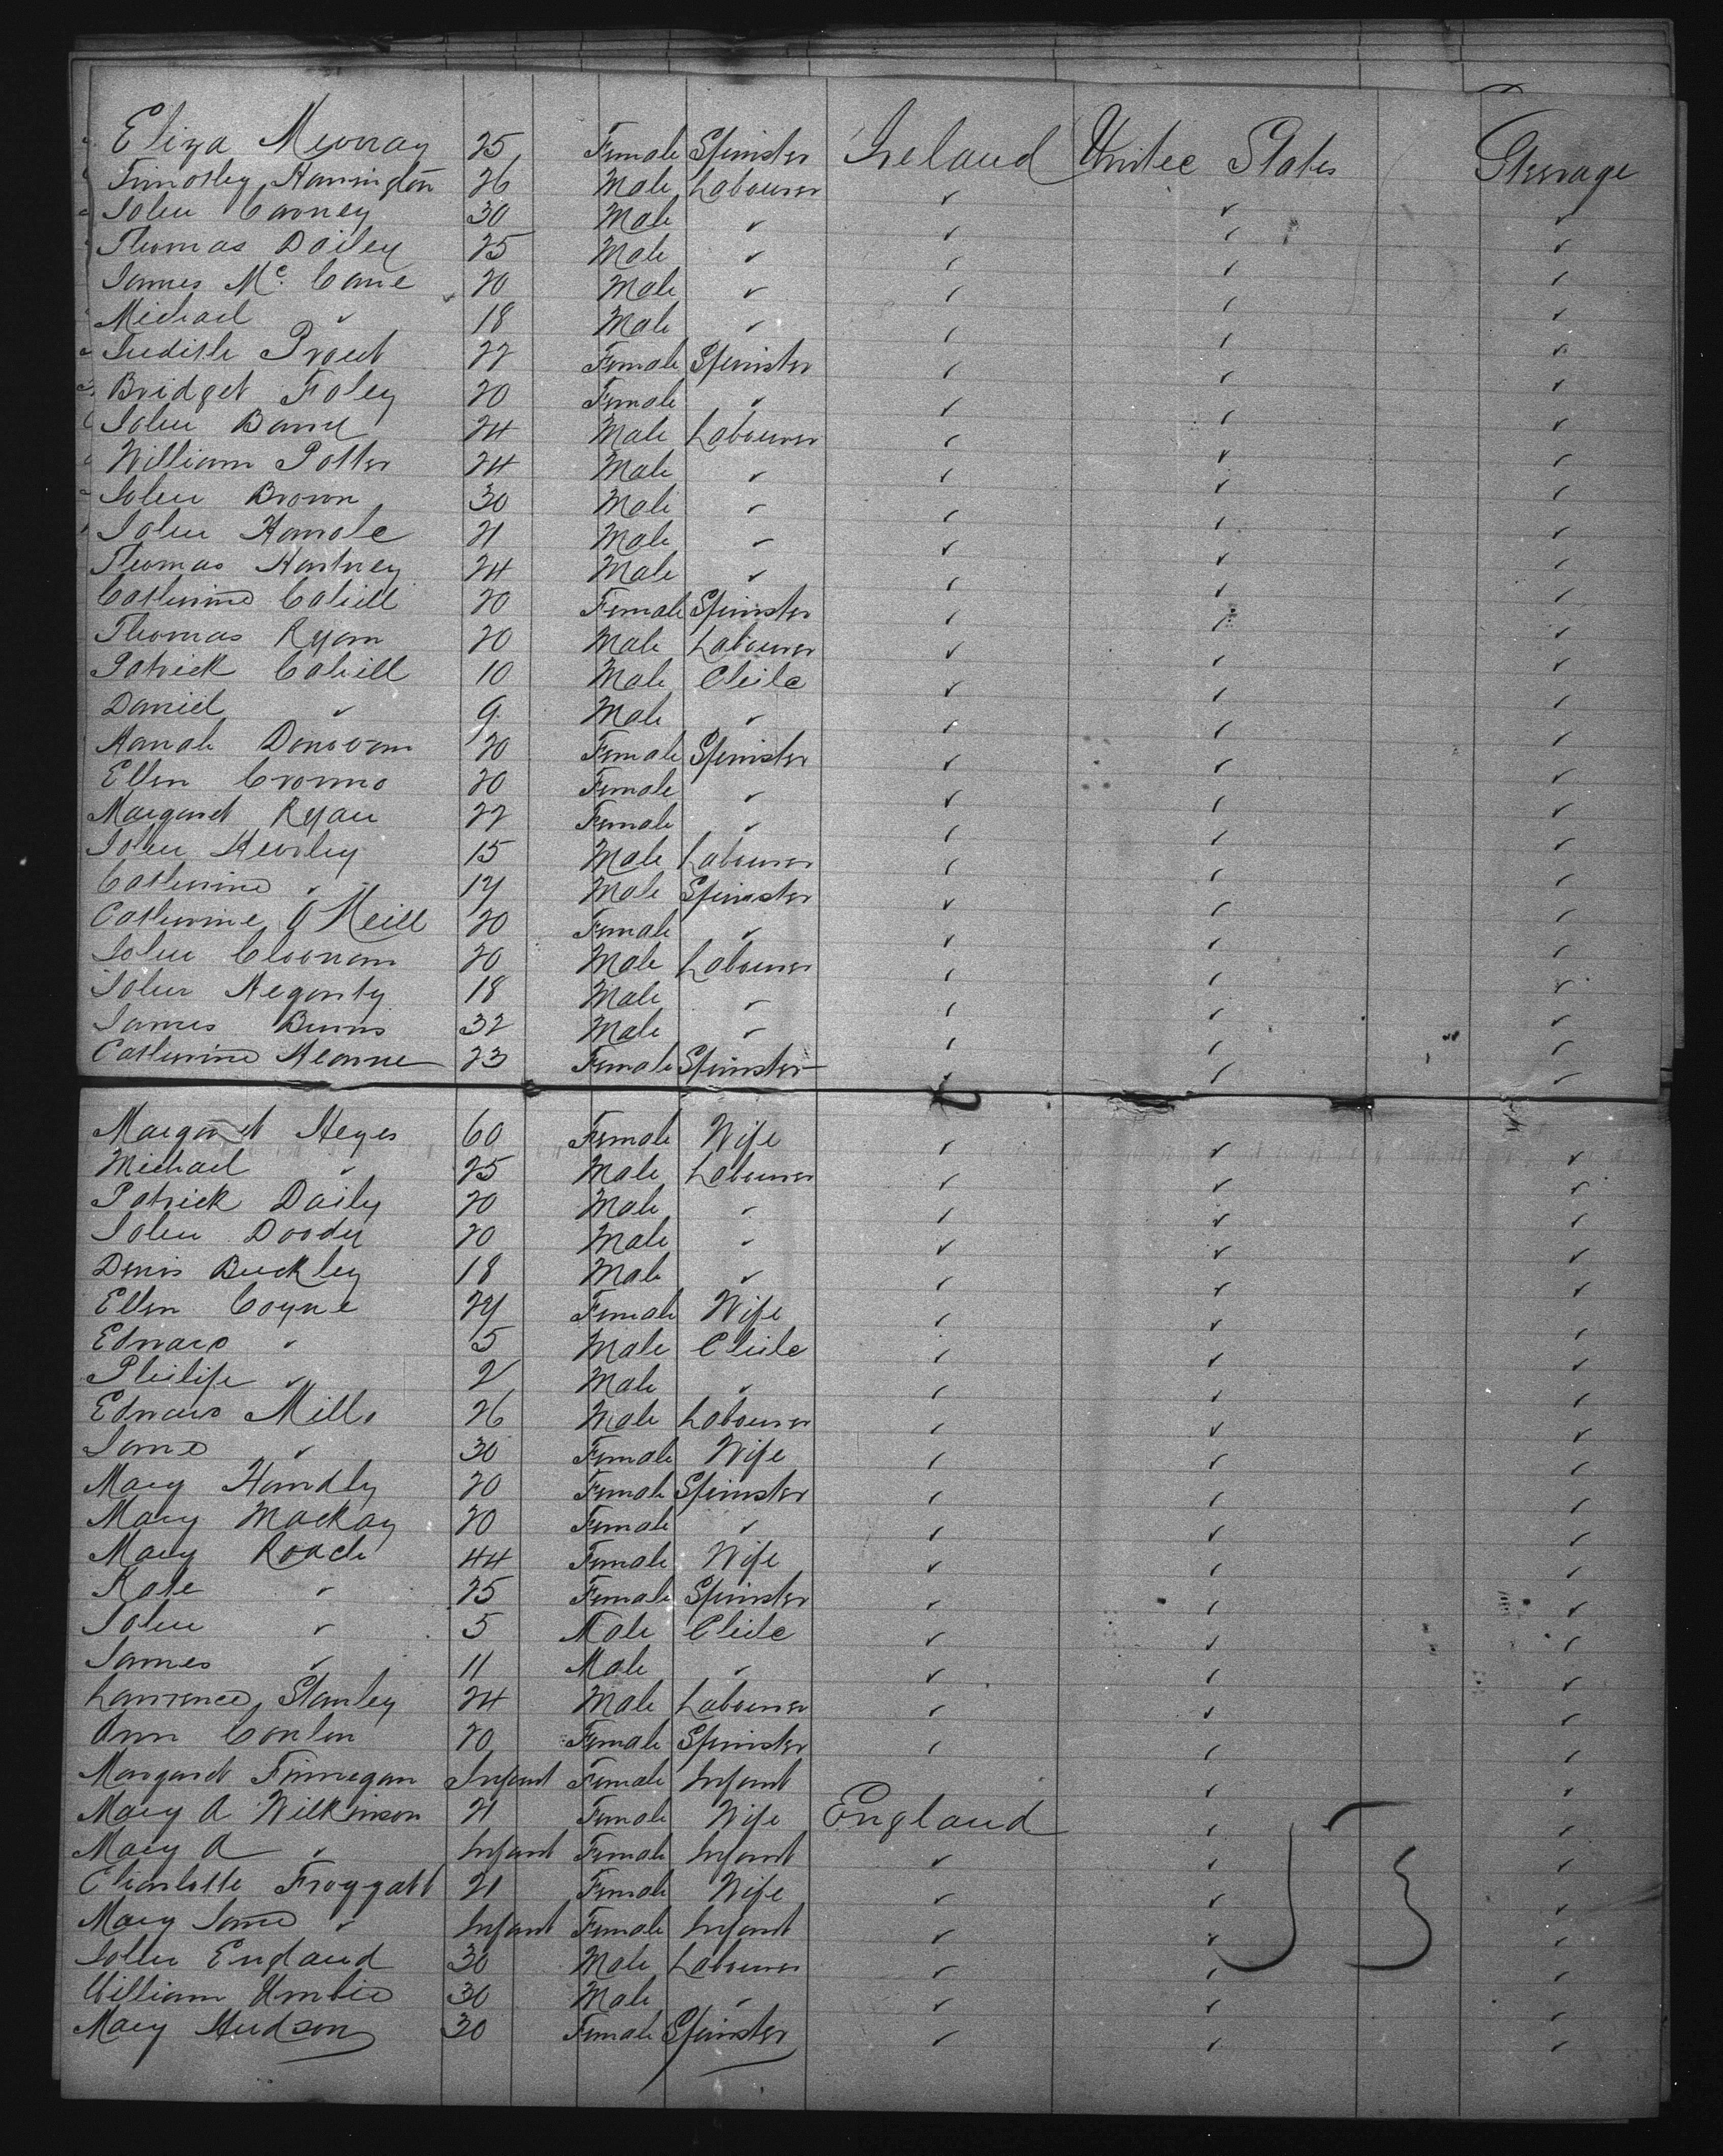 Eliza Murray 25 Female Spinster Ireland United States Steerage
Timothy Harrington 26 Male Labourer ✓ ✓ ✓
John Carney 30 Male ✓ ✓ ✓ ✓
Thomas Dailey 25 Male ✓ ✓ ✓ ✓
James Mc Cane 20 Male ✓ ✓ ✓ ✓
Michael ✓ 18 Male ✓ ✓ ✓ ✓
Judith Prout 22 Female Spinster ✓ ✓ ✓
Bridget Foley 20 Female ✓ ✓ ✓ ✓
John 24 Male Labourer ✓ ✓ ✓
William Potter 24 Male ✓ ✓ ✓ ✓
John Brown 30 Male ✓ ✓ ✓ ✓
John 21 Male ✓ ✓ ✓ ✓
Thomas Hartney 24 Male ✓ ✓ ✓ ✓
Catherine Cahill 20 Female Spinster ✓ ✓ ✓
Thomas Ryan 20 Male Labourer ✓ ✓ ✓
Patrick Cahill 10 Male Child ✓ ✓ ✓
Daniel ✓ 9 Male ✓ ✓ ✓ ✓
Hanah Donovan 20 Female Spinster ✓ ✓ ✓
Ellen 20 Female ✓ ✓ ✓ ✓
Margaret Ryan 22 Female ✓ ✓ ✓ ✓
John Hurley 15 Male Labourer ✓ ✓ ✓
Catherine ✓ 14 Male Spinster ✓ ✓ ✓
Catherine O Neill 20 Female ✓ ✓ ✓ ✓
John Cloonan 20 Male Labourer ✓ ✓ ✓
John Hegarty 18 Male ✓ ✓ ✓ ✓
James Burns 32 Male ✓ ✓ ✓ ✓
Catherine Hearne 23 Female Spinster ✓ ✓ ✓
Margaret Heyes 60 Female Wife ✓ ✓ ✓
Michael ✓ 25 Male Labourer ✓ ✓ ✓
Patrick Daily 20 Male ✓ ✓ ✓ ✓
John Doody 20 Male ✓ ✓ ✓ ✓
Denis Buckley 18 Male ✓ ✓ ✓ ✓
Ellen Coyne 24 Female Wife ✓ ✓ ✓
Edward ✓ 5 Male Child ✓ ✓ ✓
Philip ✓ 2 Male ✓ ✓ ✓ ✓
Edward Mills 26 Male Labourer ✓ ✓ ✓
Jane ✓ 30 Female Wife ✓ ✓ ✓
Mary Handly 20 Female Spinster ✓ ✓ ✓
Mary Mackay 20 Female ✓ ✓ ✓ ✓
Mary Roach 44 Female Wife ✓ ✓ ✓
Kate ✓ 25 Female Spinster ✓ ✓ ✓
John ✓ 5 Male Child ✓ ✓ ✓
James ✓ 11 Male ✓ ✓ ✓ ✓
Lawrence Stanley 24 Male Labourer ✓ ✓ ✓
Ann Conlon 20 Female Spinster ✓ ✓ ✓
Margaret Finnegan Infant Female Infant ✓ ✓
Mary A Wilkinson 21 Female Wife England ✓ ✓
Mary A ✓ Infant Female Infant ✓ ✓ ✓
Charlotte Froggatt 21 Female Wife ✓ ✓ ✓
Mary Jane ✓ Infant Female Infant ✓ ✓ ✓
John England 30 Male Labourer ✓ ✓ ✓
William 30 Male ✓ ✓ ✓ ✓
Mary Hudson 30 Female Spinster ✓ ✓ ✓